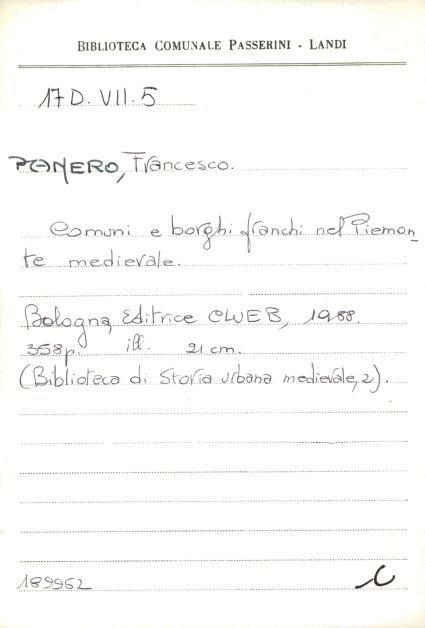 BIBLIOTECA COMUNALE PASSERINI - LANDI
17 D. VII. 5
PANERO, Francesco.
Comuni e borghi franchi nel Piemon_
te medievale.
Bologna, Editrice CLUEB, 1988.
358 p. ill. 21 cm.
(Biblioteca di Storia urbana medievale, 2).
189962